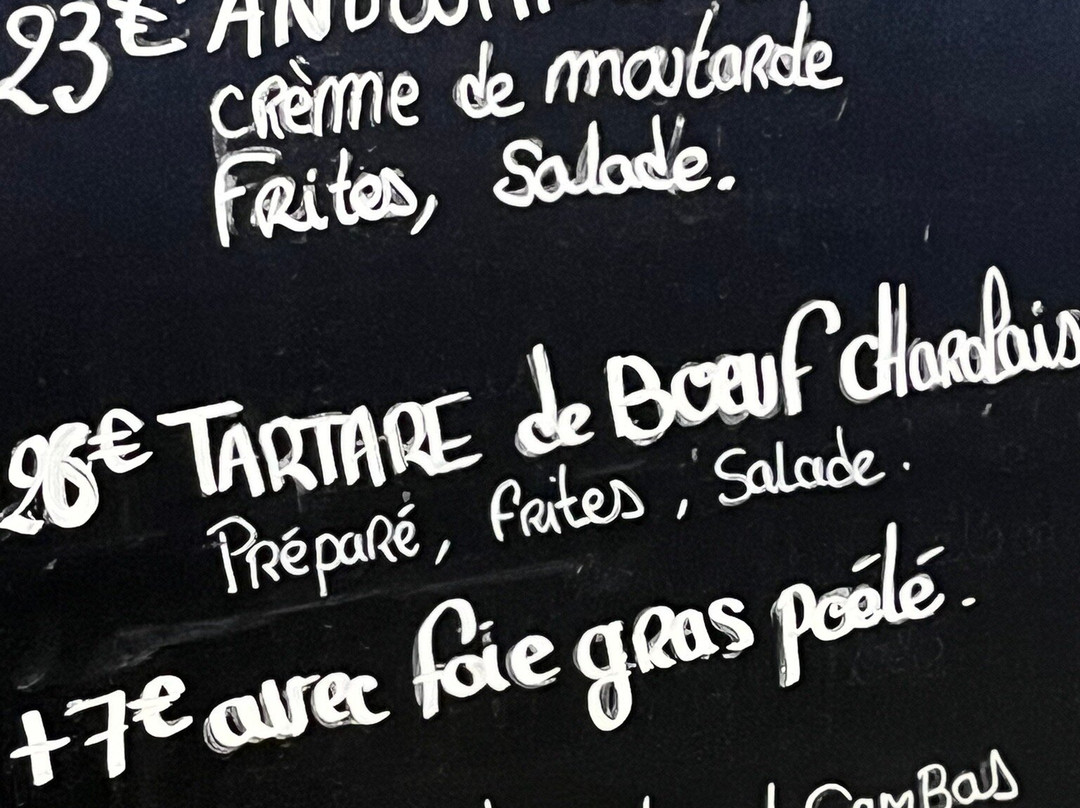 23€
crème de moutarde
Frites, Salade.
26€ TARTARE de Bœuf CHarolais
Préparé, frites, Salade.
+7€ avec foie gras poélé.
GamBas